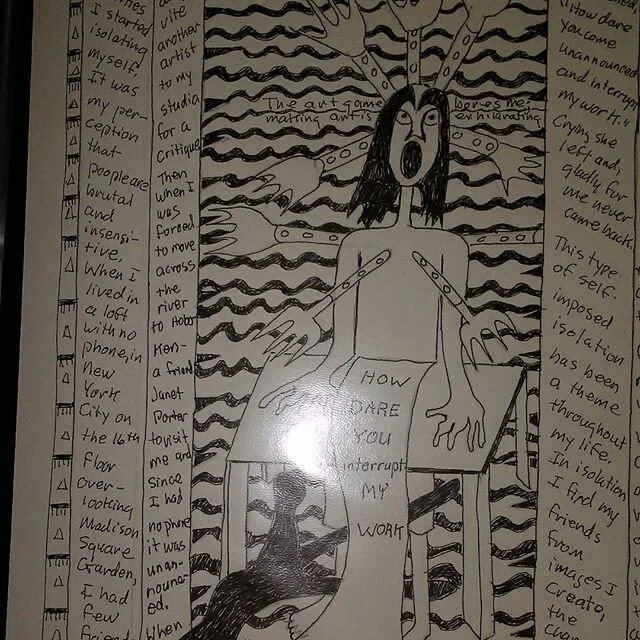 I started
isolating
myself.
It was
my per-
ception
that
People are
brutal
and
insensi-
tive.
When I
lived in
a loft
with no
phone, in
New
York
City on
the 16th
floor
over-
looking
Madison
Square
Garden,
I had
few
vite
another
artist
to my
studio
for a
critique
Then
when I
was
forced
to move
across
the
river
to Hobo
Ken-
a friend
Janet
Porter
to visit
me and
since
I had
no phone
it was
unan-
nounc-
ed.
When
The art game bores me.
making art is exhilarating
HOW
DARE
YOU
interrupt
MY
WORK
"How dare
you come
unannounced
and interrup
my work."
Crying she
left and,
gladly for
me never
came back
This type
of self-
imposed
isolation
has been
a theme
throughout
my life.
In isolation
I find my
friends
from
images I
Create,
the